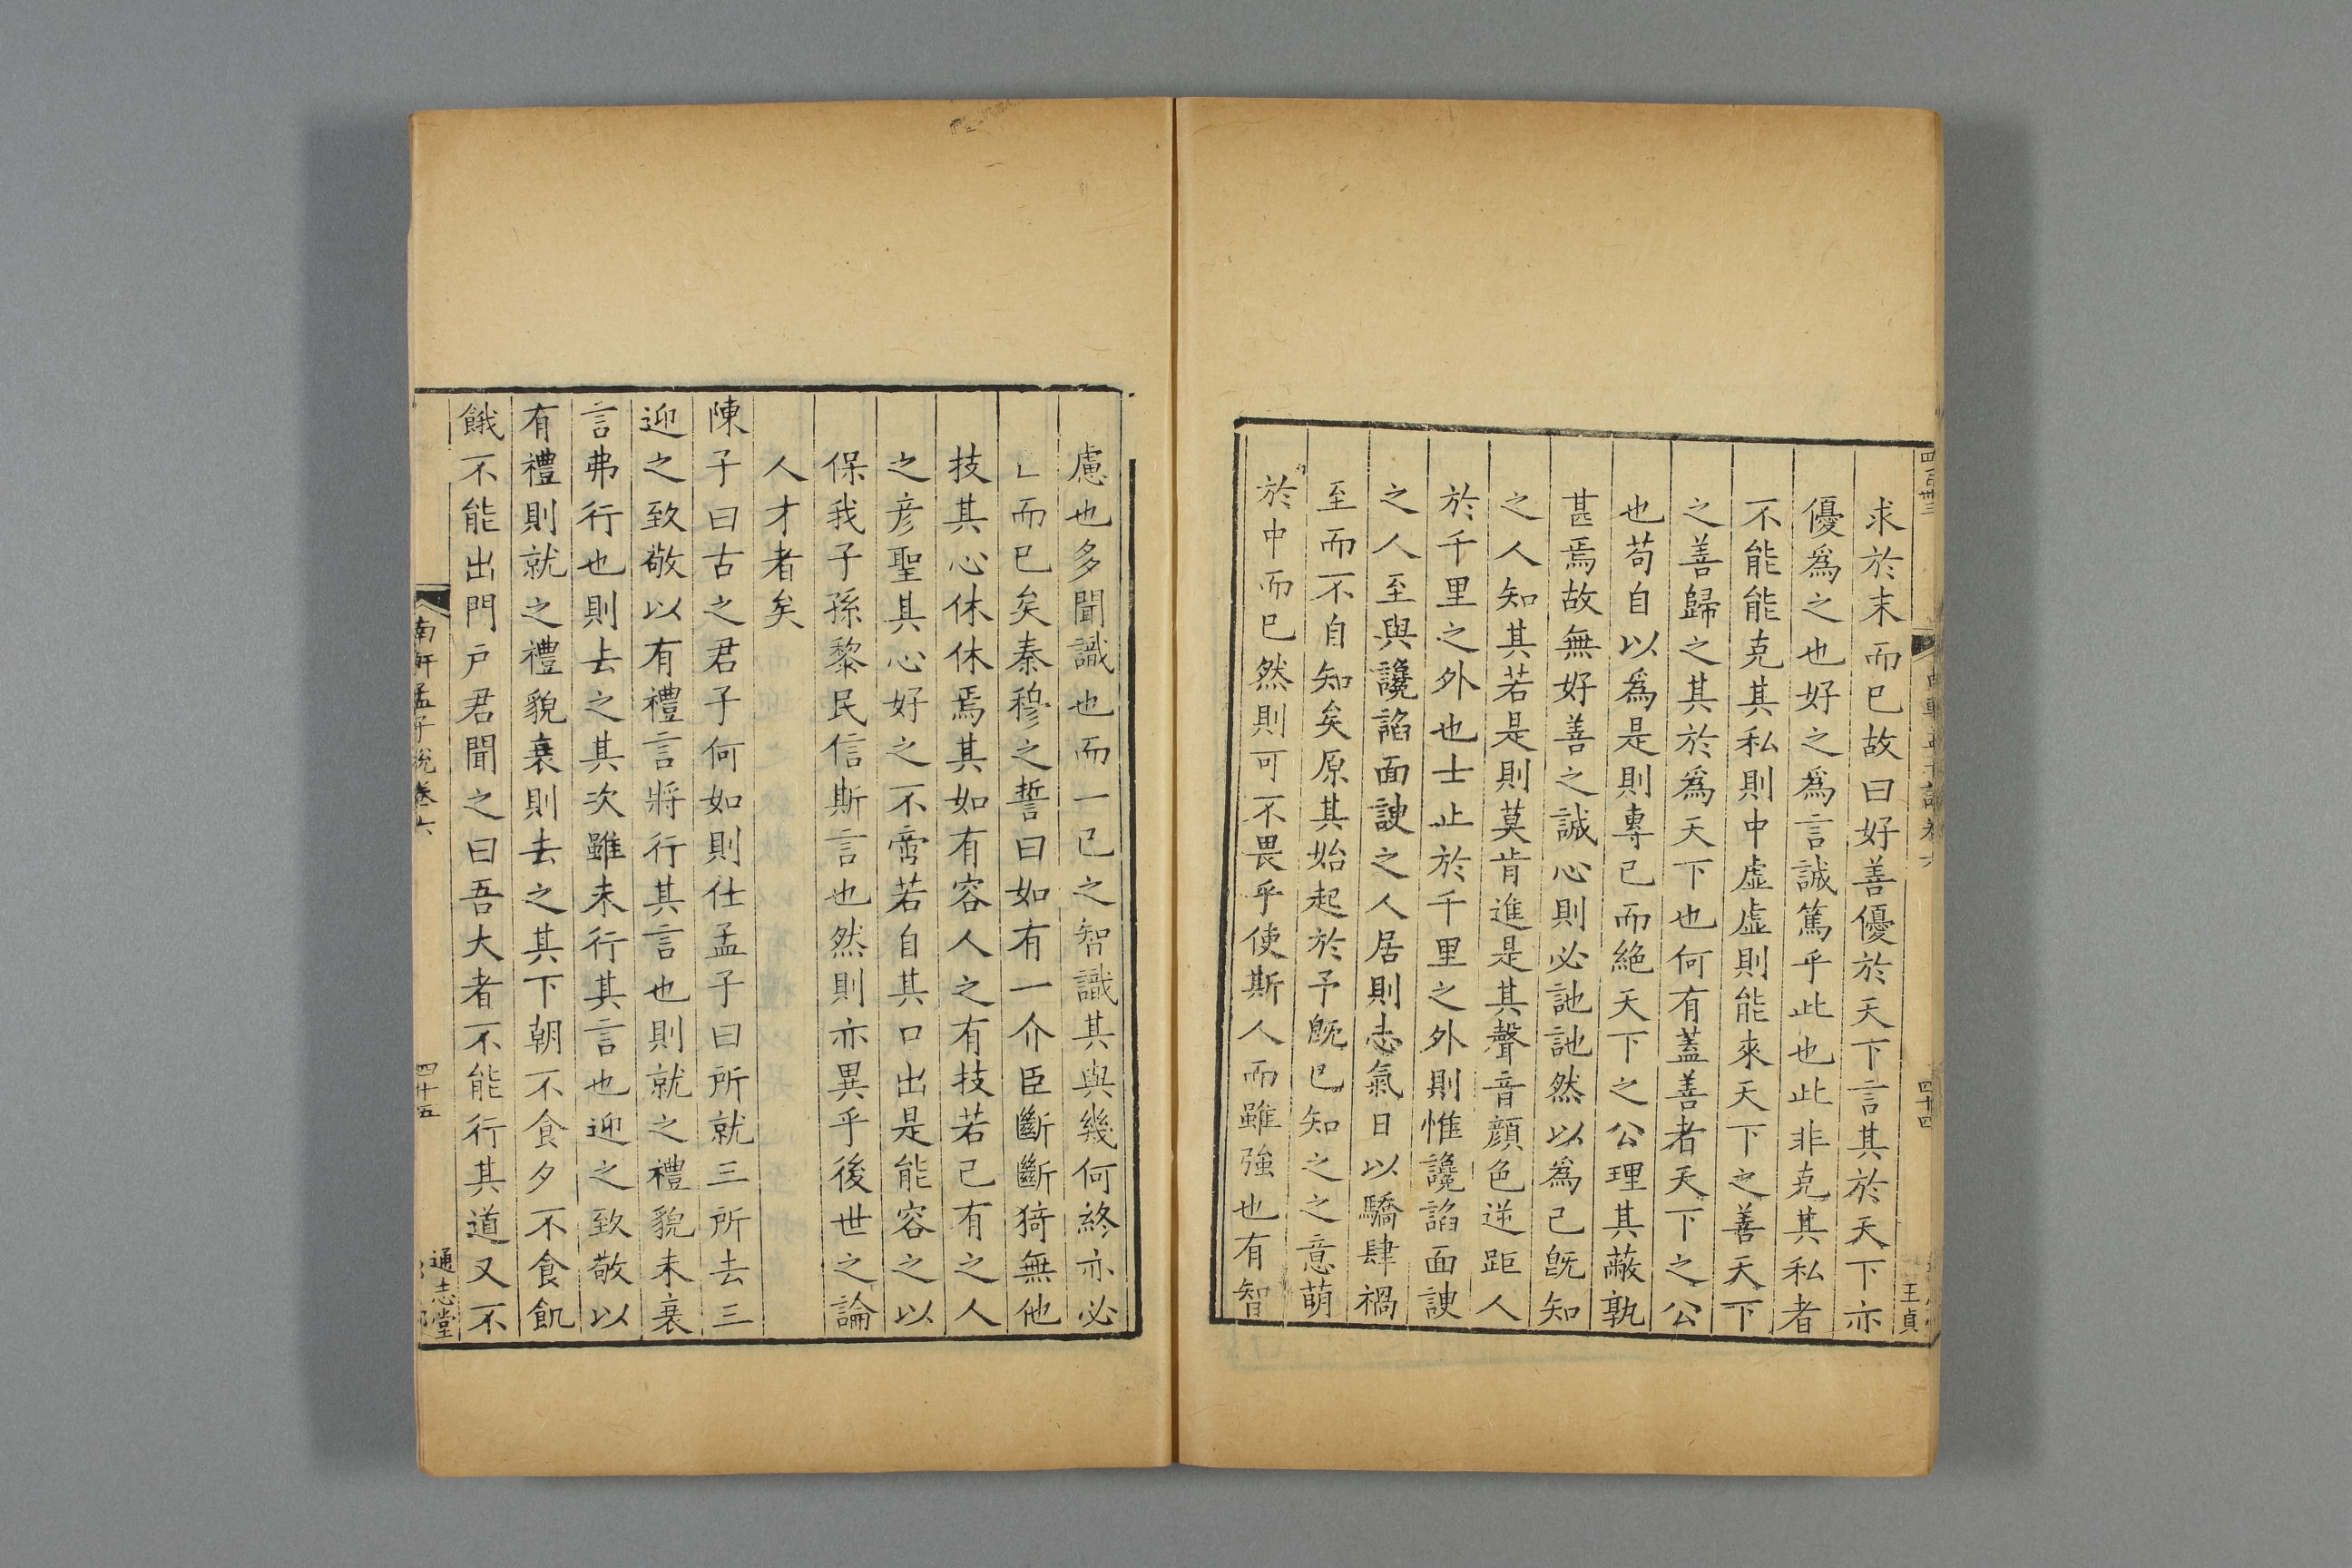 求於末而已故曰好善優於天下言其於天下亦
優爲之也好之爲言誠篤乎此也此非克其私者
不能能克其私則中虛虛則能來天下之善天下
之善歸之其於爲天下也何有蓋善者天下之公
也苟自以爲是則專已而絶天下之公理其蔽孰
甚焉故無好善之誠心則必訑訑然以爲已旣知
之人知其若是則莫肯進是其聲音顔色逆距人
於千里之外也士止於千里之外則惟讒諂面諛
之人至與讒諂面諛之人居則志氣日以驕肆禍
至而不自知矣原其始起於予旣已知之之意萌
於中而已然則可不畏乎使斯人而雖強也有智
四十四
王貞
慮也多聞識也而一已之智識其與幾何終亦必
而已矣秦穆之誓曰如有一介臣斷斷猗無他
技其心休休焉其如有容人之有技若已有之人
之彦聖其心好之不啻若自其口出是能容之以
保我子孫黎民信斯言也然則亦異乎後世之論
人才者矣
陳子曰古之君子何如則仕孟子曰所就三所去三
迎之致敬以有禮言將行其言也則就之禮貌未衰
言弗行也則去之其次雖未行其言也迎之致敬以
有禮則就之禮貌衰則去之其下朝不食夕不食飢
餓不能出門戶君聞之曰吾大者不能行其道又不
南軒孟子說卷六
四十五
通志堂